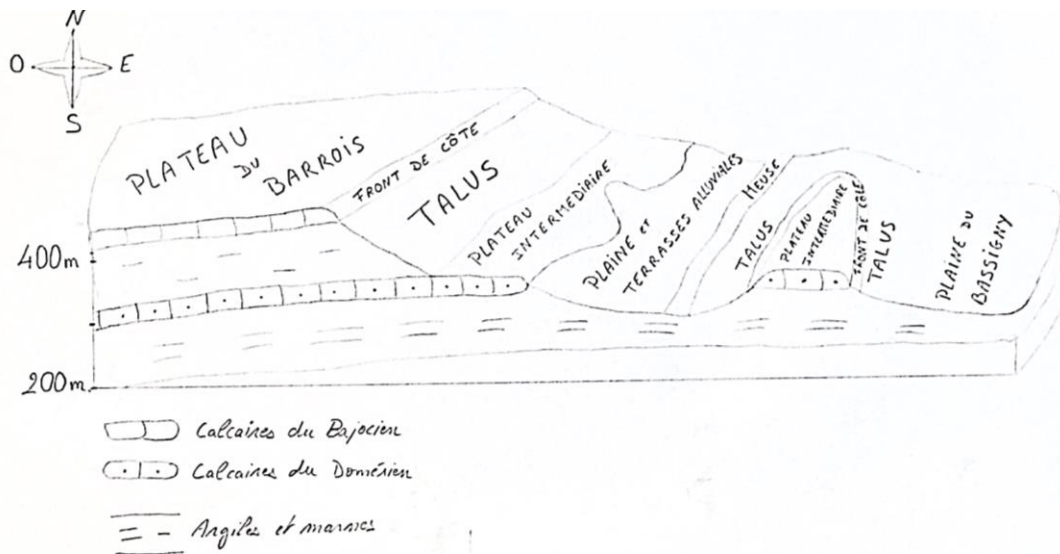 N
O E
S
PLATEAU
DU
BARROIS
FRONT DE CÔTE
TALUS
PLATEAU
INTERMEDIAIRE
PLAINE ET
TERRASSES ALLUVIALES
MEUSE
TALUS
PLATEAU
INTERMEDIAIRE
FRONT DE CÔTE
TALUS
PLAINE DU
BASSIGNY
400m
200m
Calcaires du Bajocien
Calcaires du Domérien
Argiles et marnes